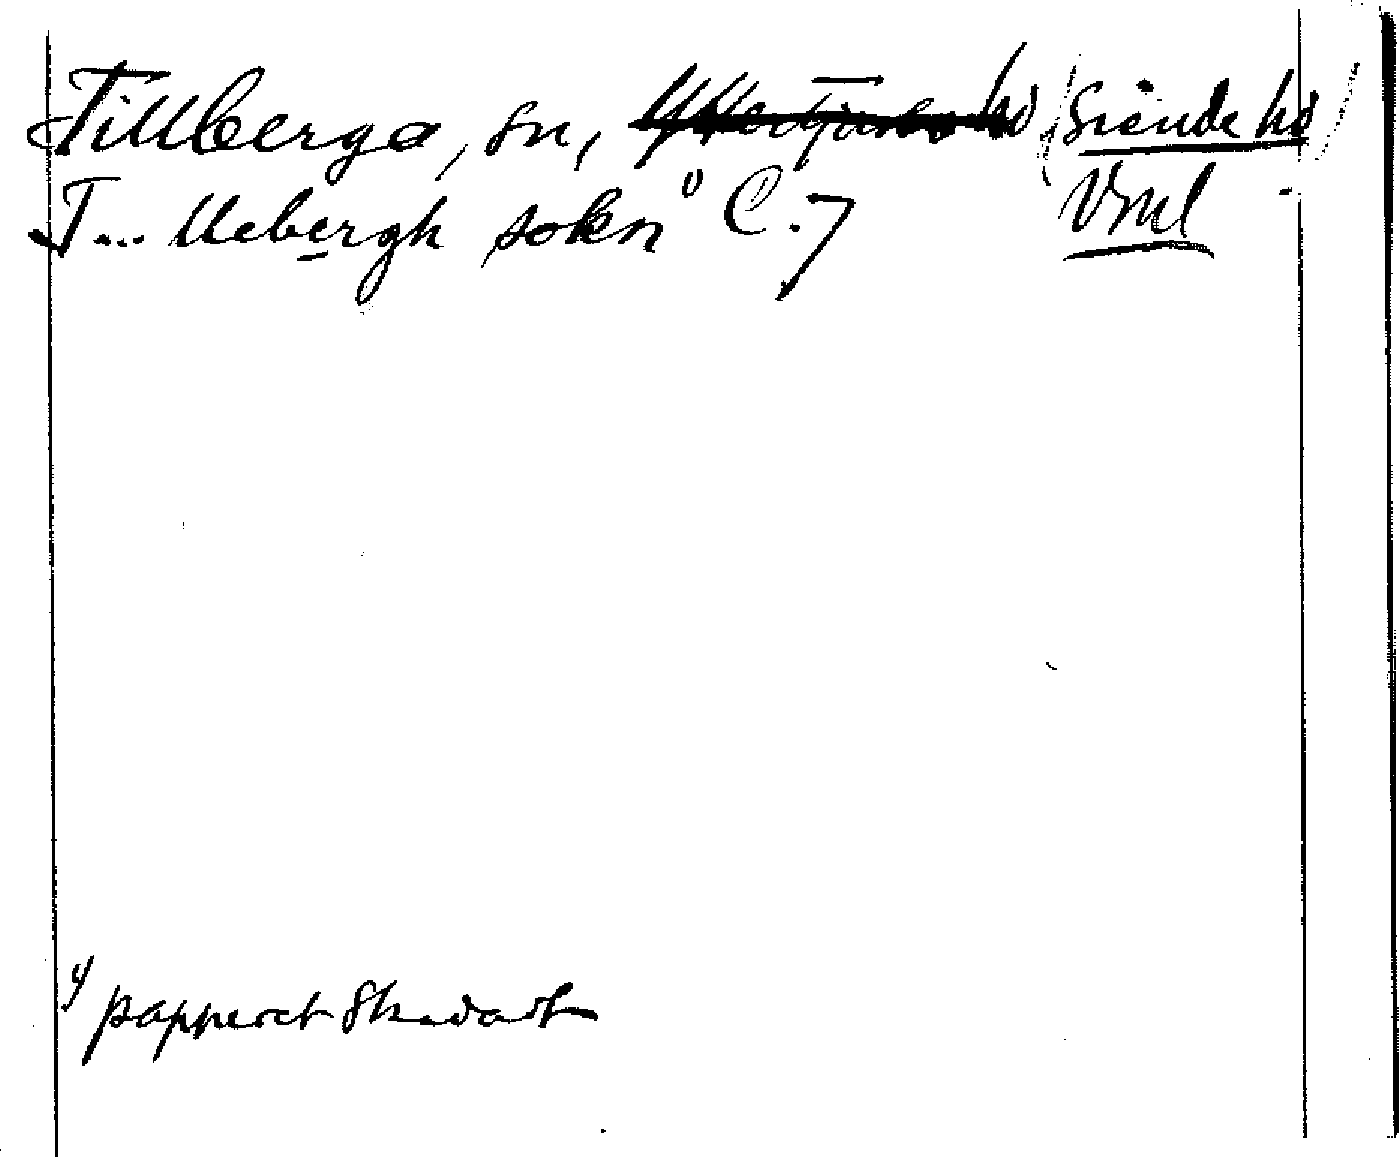 Tillberga, sn, Yttertjurbo hd (Siende hd)
T... llebergh sokn 1) C. 7 Vml
1) papperet skadat